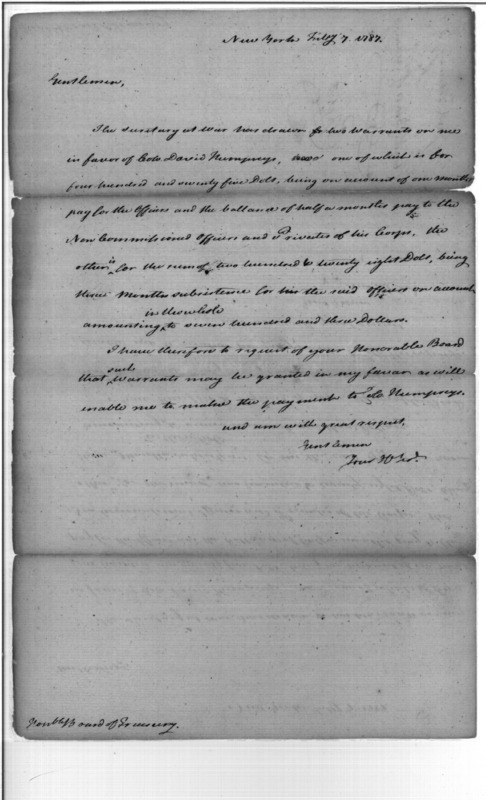 New York Feb.y 7. 1787.
Gentlemen,
The secretary at war has drawn two warrants on me
in favor of Colo David Humphreys, one of which is for
four hundred and seventy five Dolls, being on account of one months
pay for the Officers and the ballance of half a months pay to the
Non Commissioned Officers and Privates of his Corps, the
other is for the sum of two hundred & twenty eight Dolls, being
three months subsistence for the said Officers on account
in the whole
amounting to seven hundred and three Dollars.
I have therefore to request of your Honorable Board
such
that warrants may be granted in my favor as will
enable me to make the payment to Colo Humphreys.
and am with great respect.
Gentlemen
Your H Ser.
Honble Board of Treasury.